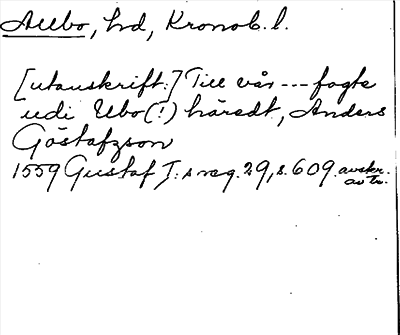 Allbo, hd, Kronob. l.
[utanskrift:] Till vår --- fogte
udi Ubo (!) häredt, Anders
Göstafzson
1559 Gustaf I:s reg. 29, s. 609. avskr.
av tr.